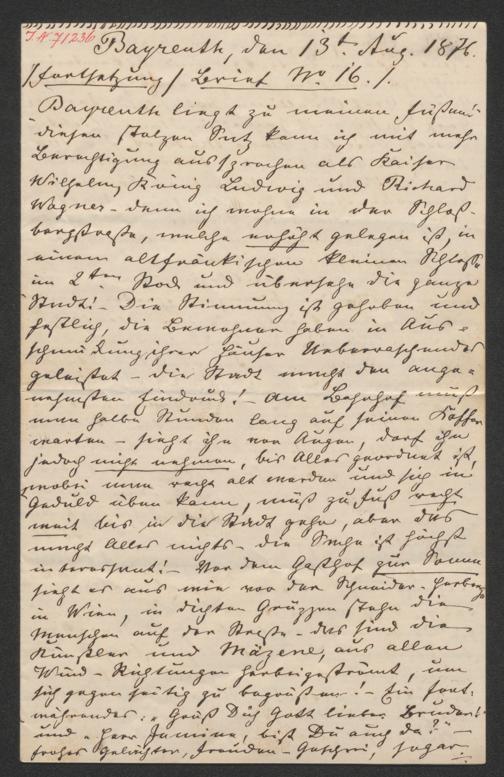 I.N. 71236
Bayreuth, den 13t. Aug. 1876.
/Fortsetzung/ Brief No 16./.
Bayreuth liegt zu meinen Füßen!
diesen stolzen Satz kann ich mit mehr
Berechtigung aussprechen als Kaiser
Wilhelm, König Ludwig und Richard
Wagner - denn ich wohne in der Schloß-
bergstraße, welche erhöht gelegen ist, in
einem altfränkischen kleinen Schlosse
im 2ten Stock und übersehe die ganze
Stadt! - Die Stimmung ist gehoben und
festlich, die Bewohner haben in Aus-
schmückung ihrer Häuser Ueberraschendes
geleistet - die Stadt macht den ange-
nehmsten Eindruck! - Am Bahnhof muß
man halbe Stunden lang auf seinen Koffer
warten - sieht ihn vor Augen, darf ihn
jedoch nicht nehmen, bis Alles geordnet ist,
wobei man recht alt werden und sich in
Geduld üben kann, muß zu Fuß recht
weit bis in die Stadt gehn, aber das
macht Alles nichts - die Sache ist höchst
interessant! - Vor dem Gasthof zur Sonne
sieht es aus wie vor der Schneider-Herberge
in Wien, in dichten Gruppen stehn die
Menschen auf der Straße - das sind die
Künstler und Mäzene, aus allen
Wind-Richtungen herbeigeströmt, um
sich gegenseitig zu begrüßen! - Ein fort-
währendes: „Grüß Dich Gott lieber Bruder!
und „Herr Jemine, bist Du auch da?" -
frohes Gelächter, Freuden-Geschrei, sogar